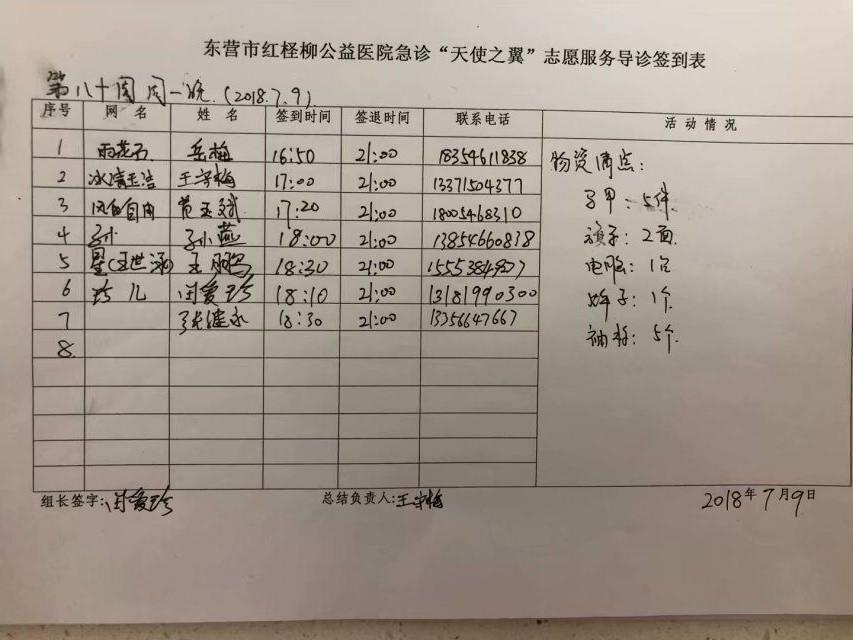 东营市红柽柳公益医院急诊“天使之翼”志愿服务导诊签到表
第八十周 周一晚 (2018.7.9)
序号 网名 姓名 签到时间 签退时间 联系电话 活动情况
1 雨花石 岳梅 16:50 21:00 18354611838
2 冰清玉洁 王学梅 17:00 21:00 13371504377
3 风的自由 黄玉斌 17:20 21:00 18005468310
4 孙 孙燕 18:00 21:00 13854660818
5 星(王世涵) 王鹏 18:30 21:00
6 珍儿 闵爱珍 18:10 21:00 13181990300
7 张继永 18:30 21:00 13256647667
8
物资清点:
马甲:5件
旗子:2面
电脑:1台
1个
袖标:5个
组长签字:闵爱珍 总结负责人:王学梅 2018年7月9日